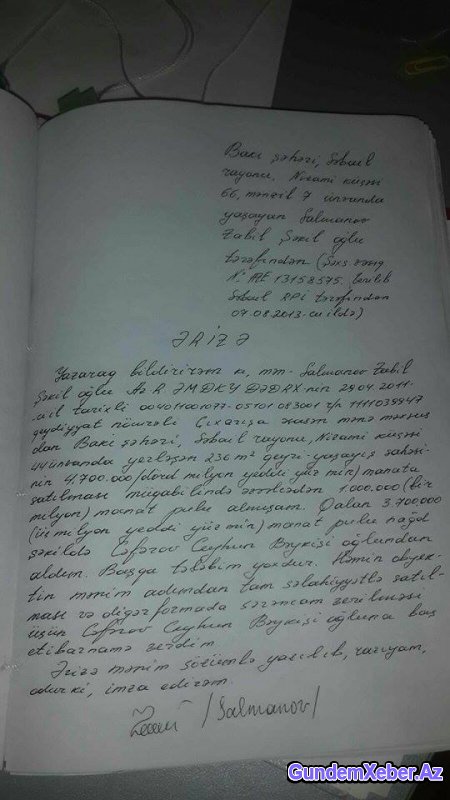 Bakı şəhəri, Səbail
rayonu, Nizami küçəsi
66, mənzil 7 ünvanda
yaşayan Salmanov
Zabil Şəkil oğlu
tərəfindən (şəxs vəsiq
№ AZE 13158575 verilib
Səbail RPİ tərəfindən
07.08.2013-cü ildə)
ƏRİZƏ
Yazaraq bildirirəm ki, mən Salmanov Zabil
Şəkil oğlu Az.R ƏMDKY DƏDRX-nin 29.04.2011-
ci il tarixli
qeydiyyat nömrəli Çıxarışa əsasən mənə məxsus
olan Bakı şəhəri, Səbail rayonu, Nizami küçəsi
ünvanda yerləşən 236 m² qeyri-yaşayış sahəsi-
nin 4,700.000 (dörd milyon yeddi yüz min) manata
satılması müqabilində əvvəlcədən 1.000.000 (bir
milyon) manat pulu almışam. Qalan 3.700.000
(üç milyon yeddi yüz min) manat pulu nağd
şəkildə Cəfərov Ceyhun Bəykişi oğlundan
aldım. Başqa tələbim yoxdur. Həmin obyek-
tin mənim adımdan tam səlahiyyətlə satıl-
ması və digər formada sərəncam verilməsi
üçün Cəfərov Ceyhun Bəykişi oğluna baş
etibarnamə verdim.
Ərizə mənim sözümlə yazılıb, razıyam,
odur ki, imza edirəm.
/Salmanov/
GundemXeber.Az